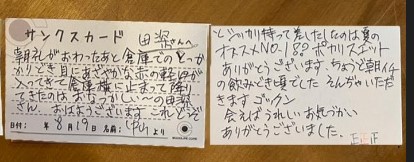 サンクスカード
田 さんへ
朝礼がおわったあと倉庫でのとっか
かりどき目にあざやかな赤の軽トラが
入ってきて倉庫横に止まって降り
てきたのはおなつかし〜の田
さん、おはようございます これどうぞ
日付: 年 8月17日 名前: より
といつかり持って差したしたのは夏の
オススメNO.1?? ポカリスエット
ありがとうございます。ちょうど朝イチ
の飲みどき頃でした えんりょいただ
きます ゴックン
会えばうれしい お気づかい
ありがとうございました。